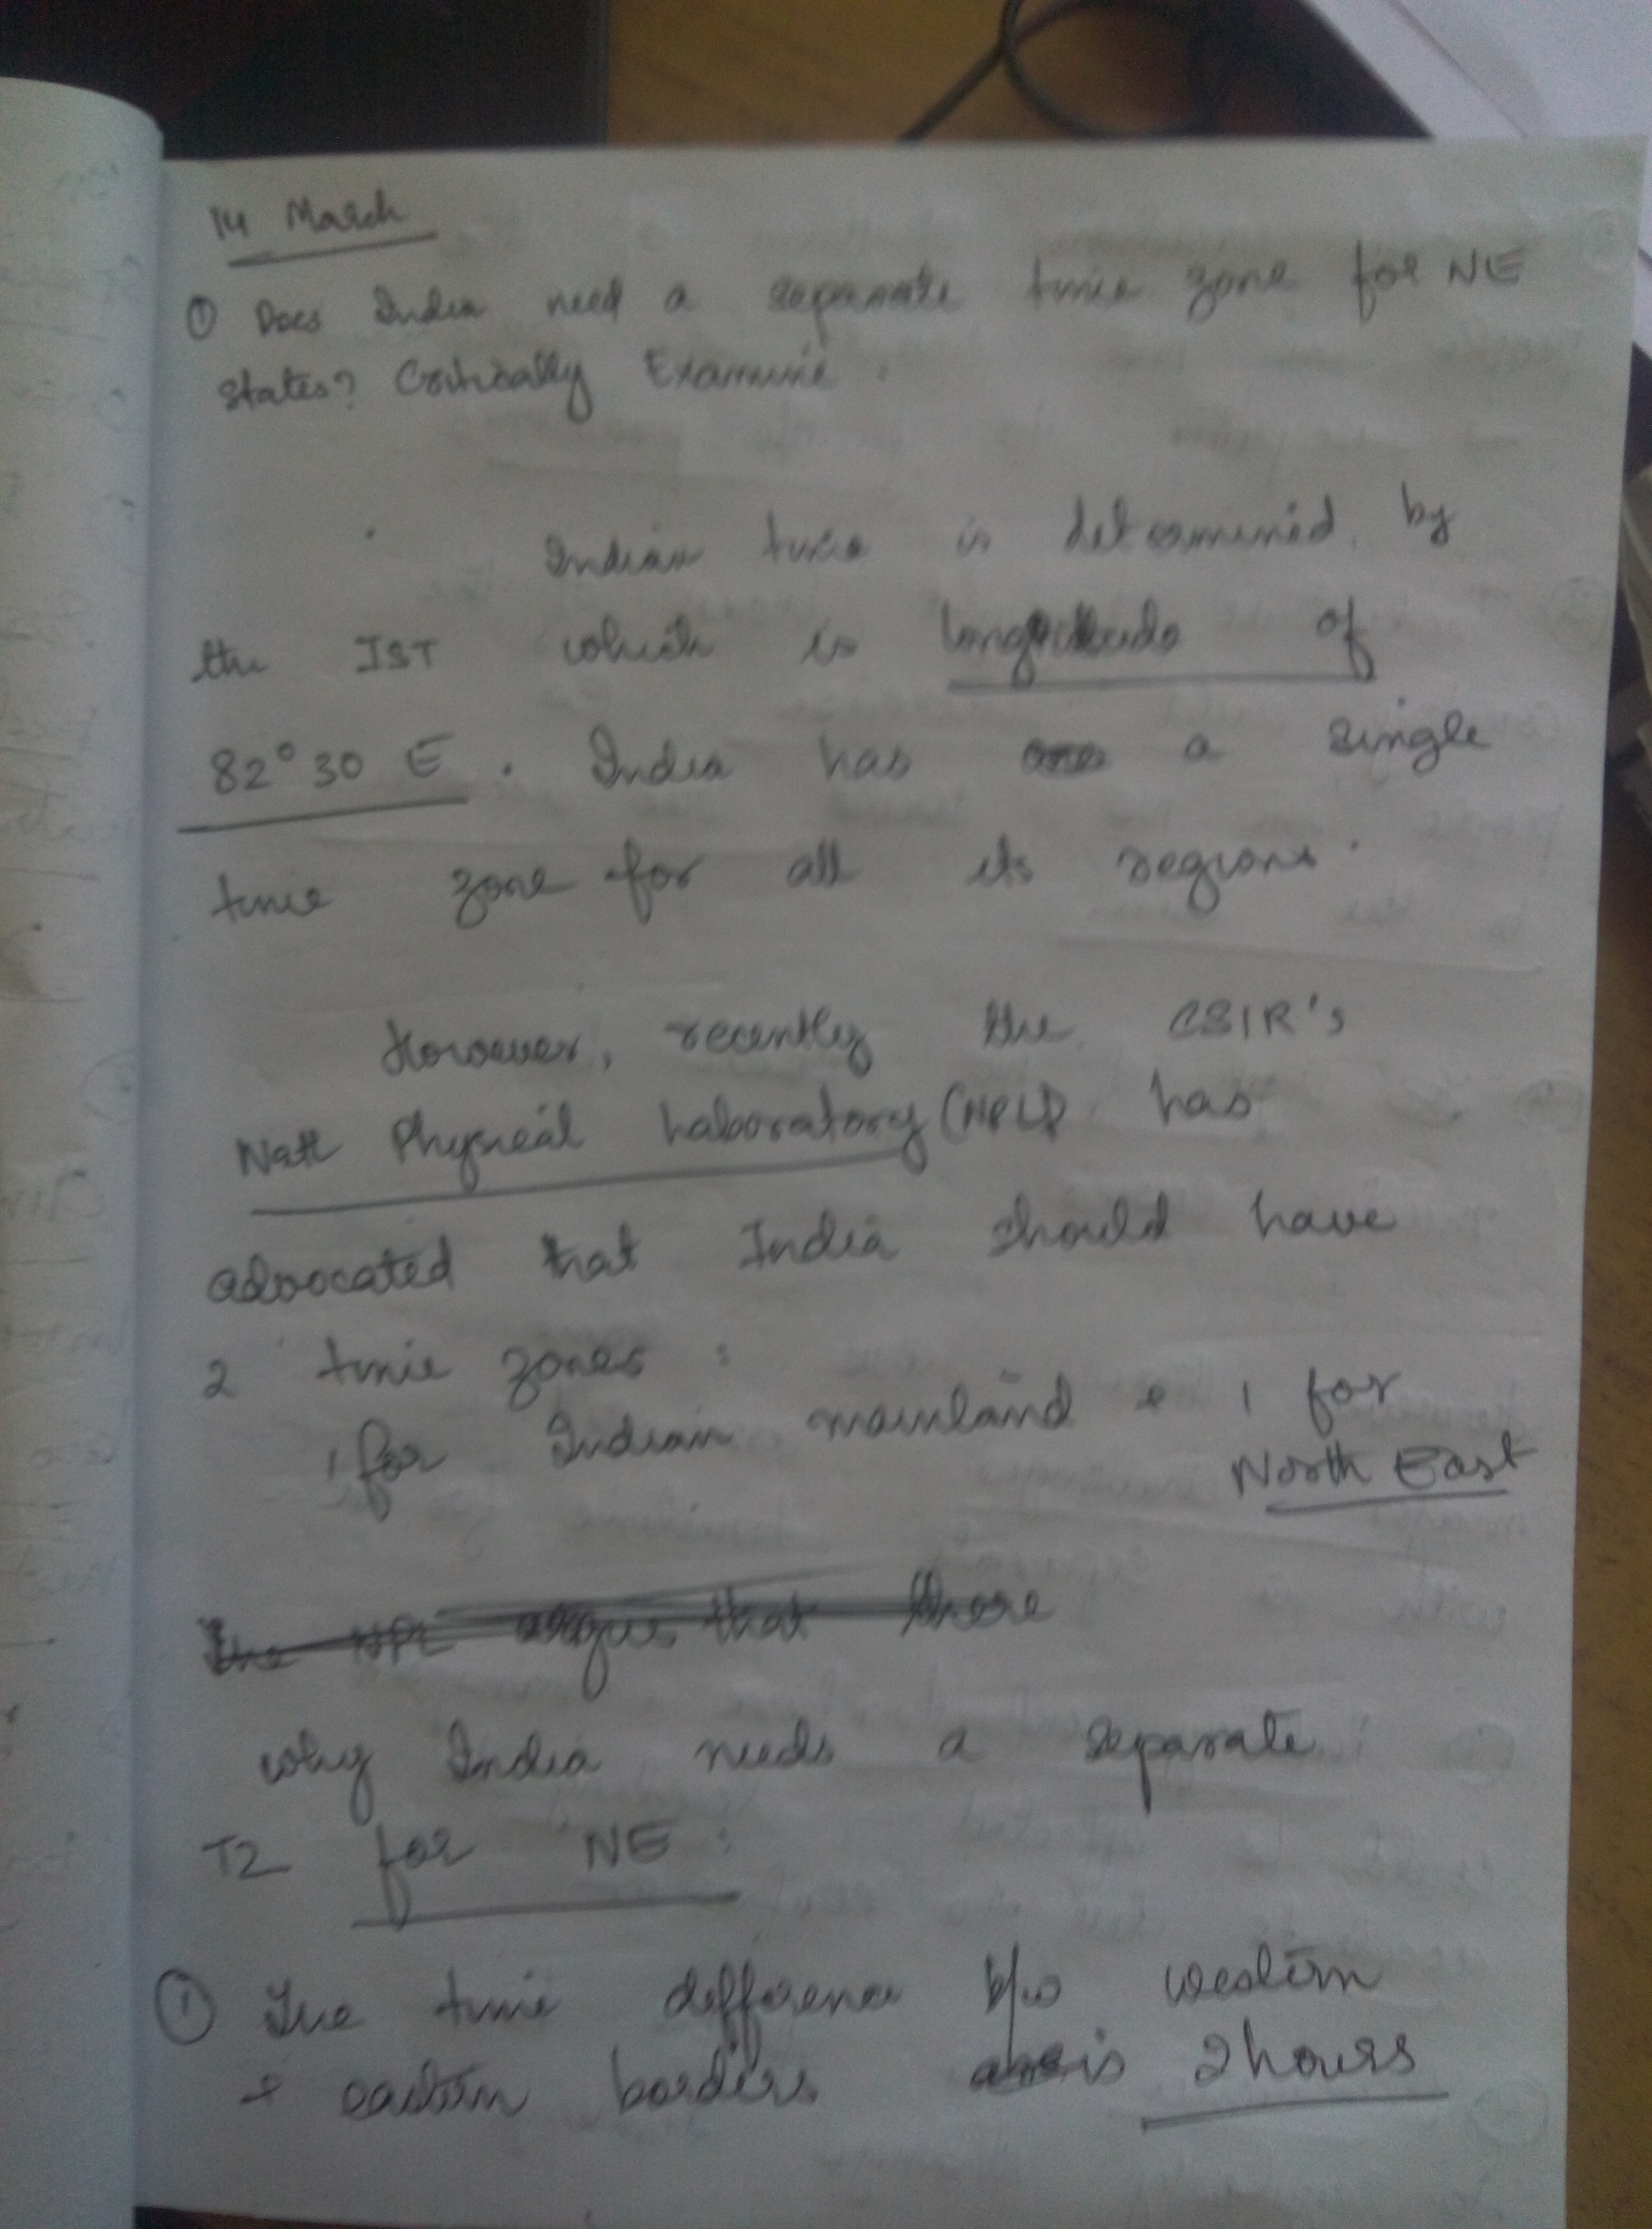 14 March
① Does India need a separate time zone for NE
states? Critically Examine.
Indian time is determined by
the IST which is longitude of
82° 30 E. India has a single
time zone for all its regions.
However, recently the CSIR's
Natl Physical Laboratory (NPL) has
advocated that India should have
2 time zones:
1 for Indian mainland & 1 for
North East
The NPL argues that there
why India needs a separate
TZ for NE:
① The time difference b/w western
& eastern borders is 2 hours